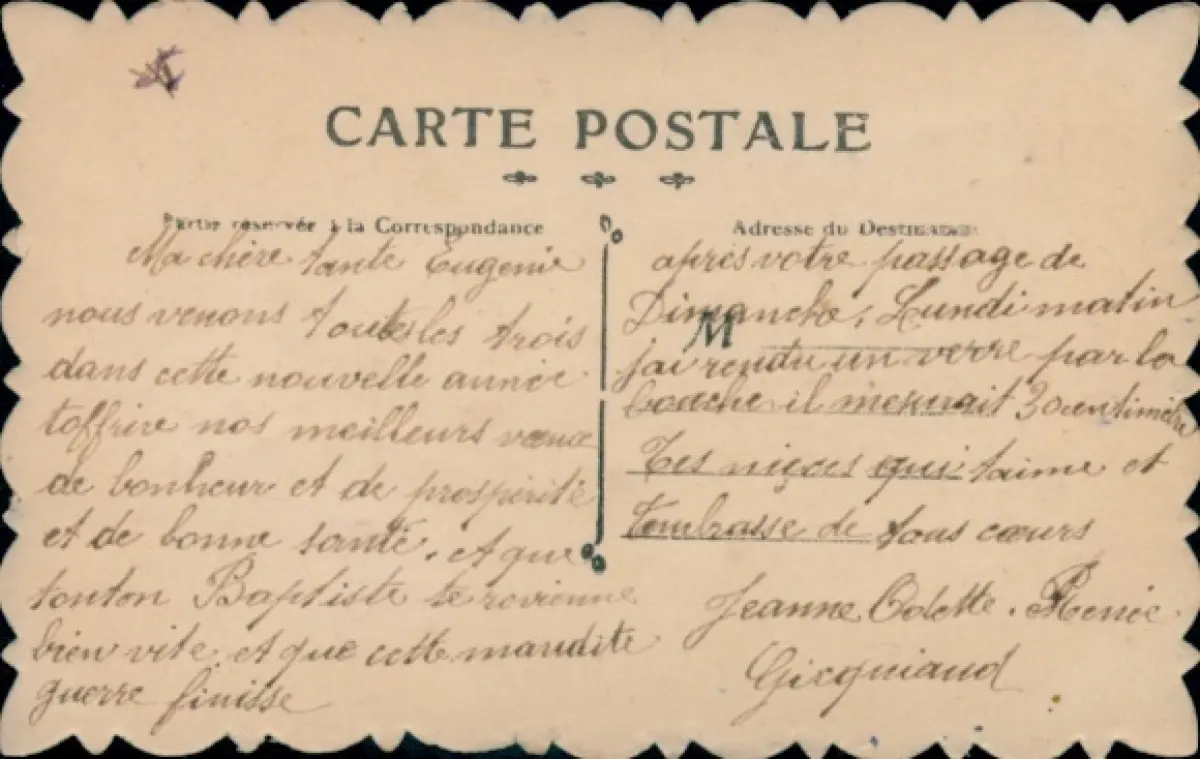 CARTE POSTALE
Partie réservée à la Correspondance
Adresse du Destinataire
Ma chère tante Eugenie
nous venons toutes les trois
dans cette nouvelle année
t'offrire nos meilleurs vœux
de bonheur et de prospérité
et de bonne santé, et que
tonton Baptiste te revienne
bien vite et que cette maudite
guerre finisse
après votre passage de
Dimanche, Lundi matin
M
j'ai rendu un verre par la
bouche il mesurait 30 centimètre
Tes nièces qui t'aime et
t'embrasse de tous cœurs
Jeanne Odette. Renée
Gicquiaud